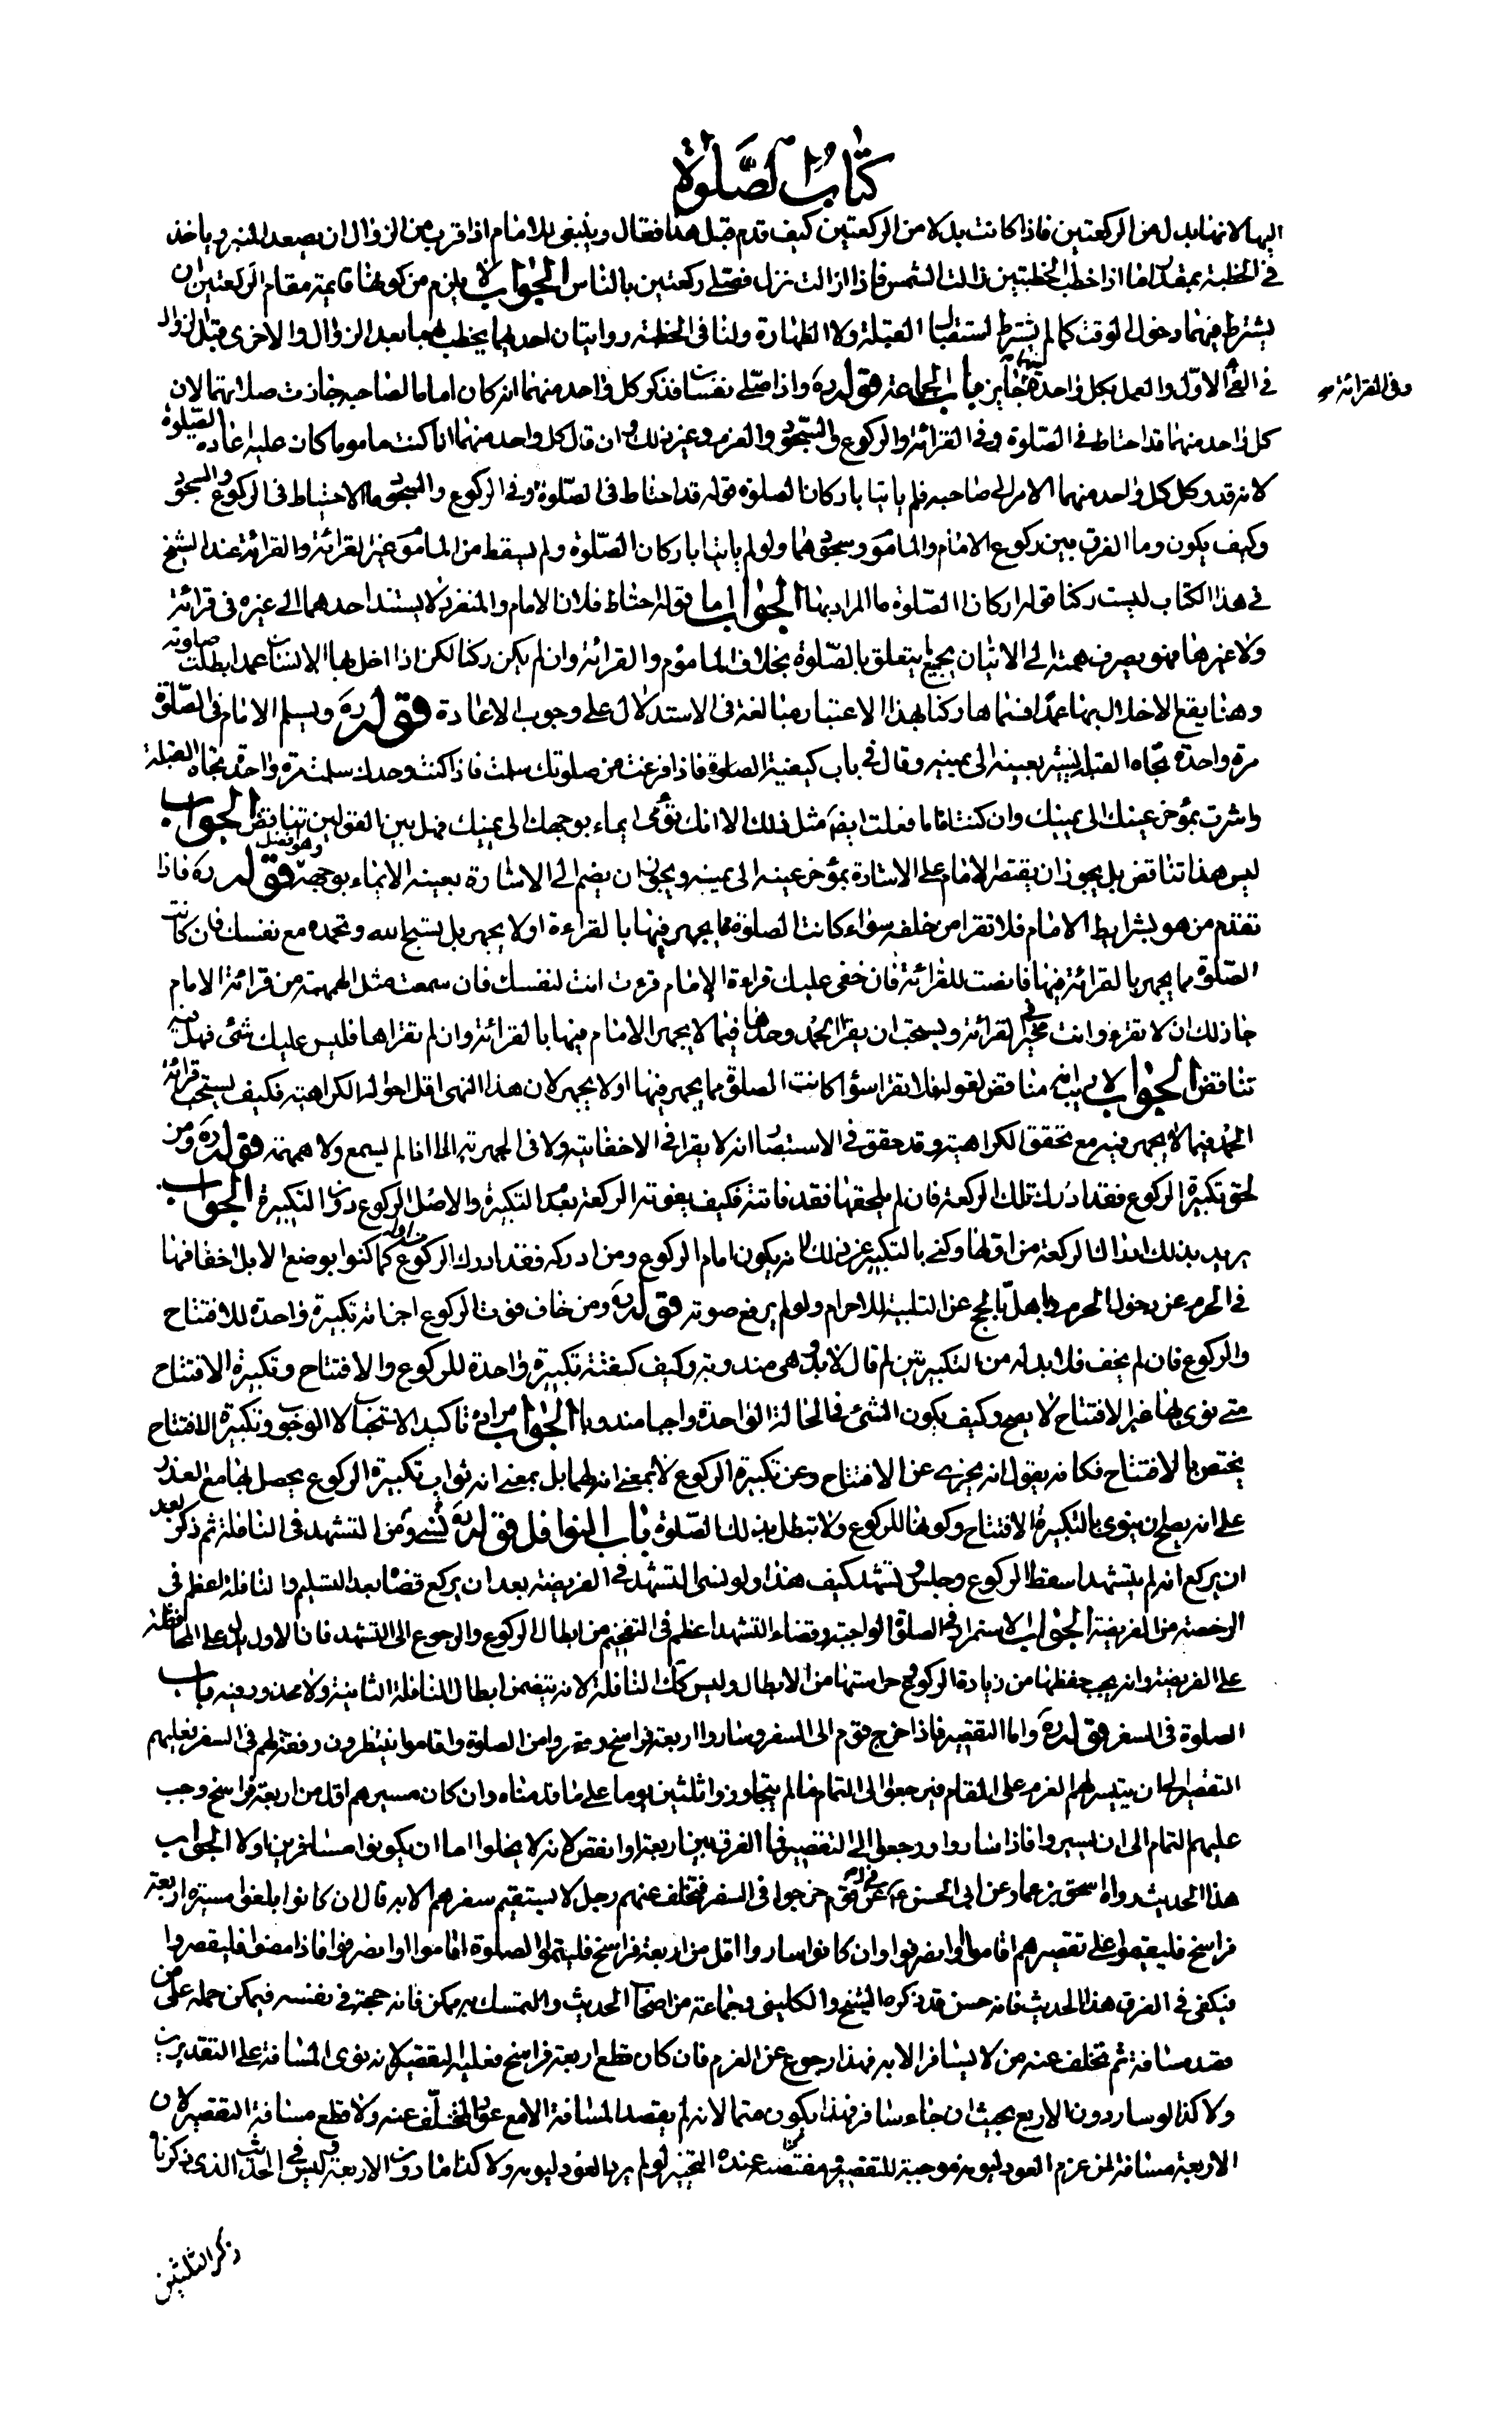 كتاب الصلوة
اليها لانها بدل من الركعتين فاذا كانت بدلا من الركعتين كيف قدم قبل هذا فقال وينبغى للامام اذا قرب من الزوال ان يصعد المنبر وياخذ
فى الخطبة بمقدار ما اذا خطب الخطبتين زالت الشمس فاذا زالت نزل فصلى ركعتين بالناس الجواب لا يلزم من كونها قايمة مقام الركعتين ان
يشترط فيهما دخول الوقت كما لم يشترط استقبال القبلة ولا الطهارة ولنا فى الخطبة روايتان احديهما يخطب بهما بعد الزوال والاخرى قبل الزوال
فى الفئ الاول والعمل بكل واحدة منهما جايز باب الجماعة قوله ره واذا صلى نفسان فذكر كل واحد منهما انه كان اماما لصاحبه جازت صلاتهما لان
وفى القرائة
كل واحد منهما قد احتاط فى الصلوة وفى القرائة والركوع والسجود والعزم وغير ذلك وان قال كل واحد منهما انا كنت ماموما كان عليه اعادة الصلوة
لانه قد وكل كل واحد منهما الامر الى صاحبه فلم ياتيا باركان الصلوة قوله قد احتاط فى الصلوة وفى الركوع والسجود ما الاحتياط فى الركوع والسجود
وكيف يكون وما الفرق بين ركوع الامام والماموم وسجودهما ولو لم ياتيا باركان الصلوة ولم يسقط من الماموم غير القرائة والقرائة عند الشيخ
فى هذا الكتاب ليست ركنا قوله اركان الصلوة ما المراد بها الجواب اما قوله احتاط فلان الامام والمنفرد لا يستند احدهما الى غيره فى قرائة
ولا غيرها فهو يصرف همته الى الاتيان بجميع ما يتعلق بالصلوة بخلاف الماموم والقرائة وان لم يكن ركنا لكن اذا اخل بها الانسان عمدا بطلت صلوته
وهنا يقع الاخلال بها عمدا فسماها ركنا بهذا الاعتبار مبالغة فى الاستدلال على وجوب الاعادة قوله ره ويسلم الامام فى الصلوة
مرة واحدة تجاه القبلة يشير بعينه الى يمينه وقال فى باب كيفية الصلوة فاذا فرغت من صلوتك سلمت فاذا كنت وحدك سلمت مرة واحدة تجاه القبلة
واشرت بمؤخر عينك الى يمينك وان كنت اماما فعلت ايضا مثل ذلك الا انك تؤمى ايماء بوجهك الى يمينك فهل بين القولين تناقض الجواب
ليس هذا تناقض بل يجوز ان يقتصر الامام على الاشارة بمؤخر عينه الى يمينه ويجوز ان يضم الى الاشارة بعينه الايماء بوجهه وهو افضل قوله ره فاذا
تقدم من هو بشرايط الامام فلا تقرا من خلفه سواء كانت الصلوة مما يجهر فيها بالقراءة او لا يجهر بل يسبح الله وتحمده مع نفسك فان كانت
الصلوة مما يجهر بالقرائة فيها فانصت للقرائة فان خفى عليك قراءة الامام قرءت انت لنفسك فان سمعت مثل الهمهمة من قرائة الامام
جاز ذلك ان لا تقرء وانت مخير فى القرائة ويستحب ان يقرا الحمد وحدها فيما لا يجهر الامام فيها بالقرائة وان لم تقراها فليس عليك شئ فهل فيه
تناقض الجواب لا ريب انه مناقض لقوله فلا تقرا سواء كانت الصلوة مما يجهر فيها او لا يجهر لان هذا النهى اقل احواله الكراهية فكيف يستحب قرائة
الحمد فيما لا يجهر فيه مع تحقق الكراهية وقد حقق فى الاستبصار انه لا يقرا فى الاخفاتية ولا فى الجهرية الا اذا لم يسمع ولا همهمة قوله ره ومن
لحق تكبيرة الركوع فقد ادرك تلك الركعة فان لم يلحقها فقد فاتته فكيف يفوته الركعة بعد التكبيرة والاصل الركوع دون التكبيرة الجواب
يريد بذلك ادراك الركعة من اولها وكنى بالتكبير عن ذلك لانه يكون امام الركوع ومن ادركه فقد ادرك الركوع من اوله كما كنوا بوضع الابل اخفافها
فى الحرم عن دخول الحرم وباهل بالحج عن التلبية للاحرام ولو لم يرفع صوته قوله ره ومن خاف فوت الركوع اجزاته تكبيرة واحدة للافتتاح
والركوع فان لم يخف فلا بد له من التكبيرتين لم قال لا بد وهى مندوبة وكيف كيفته تكبيرة واحدة للركوع والافتتاح وتكبيرة الافتتاح
متى نوى بها غير الافتتاح لا يصح وكيف يكون الشئ فى الحالة الواحدة واجبا مندوبا الجواب مراده تاكيد الاستحباب لا الوجوب وتكبيرة الافتتاح
يختص بالافتتاح فكانه يقول انه يجزى عن الافتتاح وعن تكبيرة الركوع لا بمعنى انه لهما بل بمعنى انه ثواب تكبيرة الركوع يحصل لها مع العذر
على انه يصح ان ينوى بالتكبيرة الافتتاح وكونها للركوع ولا تبطل بذلك الصلوة باب النوافل قوله ره نسى ومن التشهد فى النافلة ثم ذكر بعد
ان يركع انه لم يتشهد اسقط الركوع وجلس وتشهد كيف هذا ولو نسى التشهد فى الفريضة بعد ان يركع قضاه بعد التسليم والنافلة اعظم فى
الرخصة من الفريضة الجواب الاستمرار فى الصلوة الواجبة وقضاء التشهد اعظم فى التفخيم من ابطال الركوع والرجوع الى التشهد فان الاول يدل على المحافظة
على الفريضة وانه يجب حفظها من زيادة الركوع حراستها من الابطال وليس كك النافلة لانه يتضمن ابطالا للنافلة الثانية ولا محذور فيه باب
الصلوة فى السفر قوله ره واما التقصير فاذا خرج قوم الى السفر وساروا اربعة فراسخ وقصروا من الصلوة واقاموا ينتظرون رفقة لهم فى السفر فعليهم
التقصير الى ان يتيسر لهم العزم على المقام فيرجعوا الى التمام ما لم يتجاوزوا ثلثين يوما على ما قدمناه وان كان مسيرهم اقل من اربعة فراسخ وجب
عليهم التمام الى ان يسيروا فاذا ساروا رجعوا الى التقصير فما الفرق بين اربعة او انقص لانه لا يخلوا اما ان يكونوا مسافرين اولا الجواب
هذا الحديث رواه اسحق بن عمار عن ابى الحسن ع فى قوم خرجوا فى السفر فتخلف عنهم رجل لا يستقيم سفرهم الا به قال ان كانوا بلغوا مسيرة اربعة
فراسخ فليقيموا على تقصيرهم اقاموا او انصرفوا وان كانوا ساروا اقل من اربعة فراسخ فليتموا الصلوة اقاموا او انصرفوا فاذا مضوا فليقصروا
فيكفى فى الفرق هذا الحديث فانه حسن قد ذكره الشيخ والكلينى وجماعة من اصحاب الحديث والتمسك به ممكن فانه حجة فى نفسه فيمكن حمله على من
قصد مسافة ثم تخلف عنه من لا يسافر الا به فهذا رجوع عن العزم فان كان قطع اربعة فراسخ فعليه التقصير لانه نوى المسافة على التقديرين
ولا كذا لو سار دون الاربع بحيث ان جاء سافر فهذا يكون متما لانه لم يقصد المسافة الا مع عود المتخلف عنه ولا قطع مسافة التقصير لان
الاربعة مسافة لمن عزم العود ليومه موجبة للتقصير ومقتضية عنده التخيير لو لم يرد العود ليومه ولا كذا ما دون الاربعة وليس فى الحديث الذى ذكرنا
ذكر الثلثين